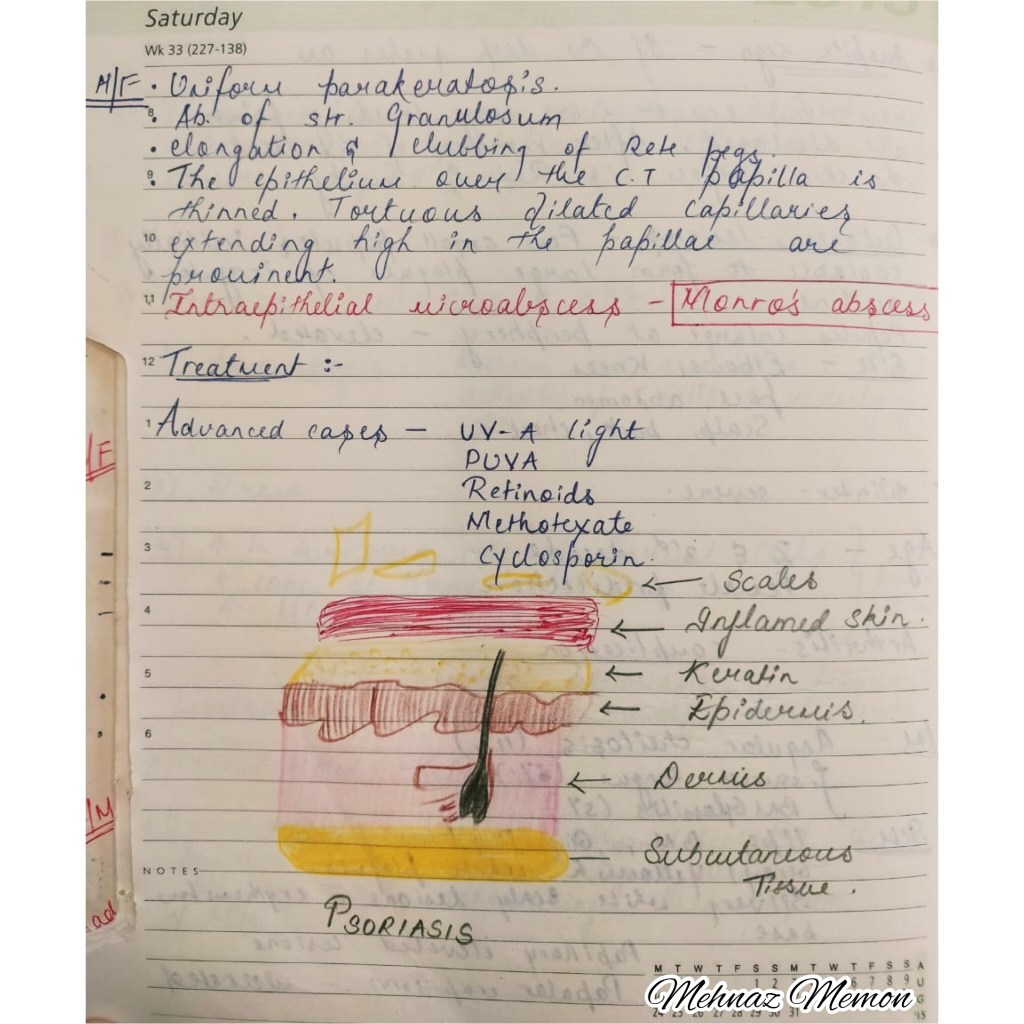 Saturday
Wk 33 (227-138)
H/F • Uniform parakeratosis.
8 • Ab. of str. Granulosum
• elongation & clubbing of Rete pegs.
9 • The epithelium over the C.T papilla is
thinned. Tortuous dilated capillaries
10 extending high in the papillae are
prominent.
11 Intraepithelial microabscess - Monro's abscess
12 Treatment :-
1 Advanced cases - UV-A light
PUVA
2 Retinoids
Methotexate
3 Cyclosporin.
← Scales
4 ← Inflamed skin.
5 ← Keratin
← Epidermis.
6
← Dermis
Subcutaneous
NOTES
Tissue.
PSORIASIS
/F
/M
ad
M T W T F S S M T W T F S S A
Mehnaz Memon